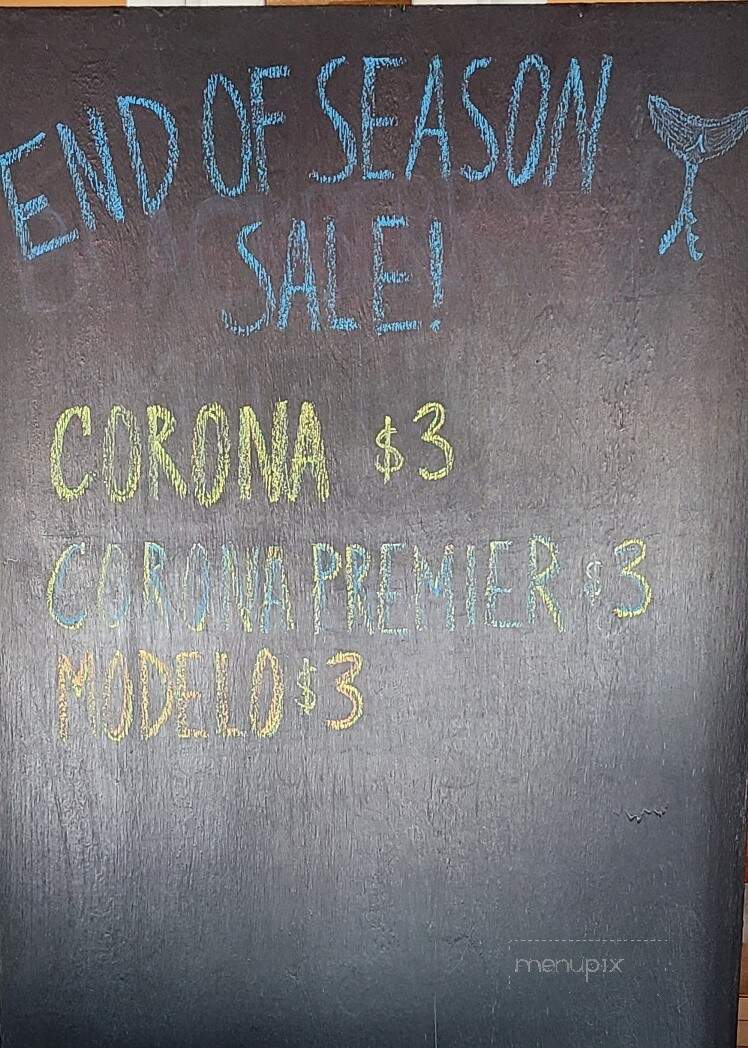 END OF SEASON
SALE!
CORONA $3
CORONA PREMIER $3
MODELO $3
menupix